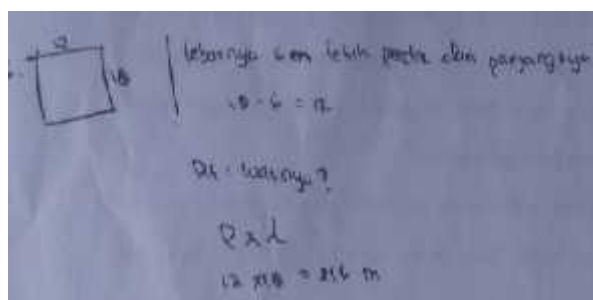 12
18
lebarnya 6 cm lebih pendek dari panjangnya
18 - 6 = 12
Dit : luasnya ?
P x L
12 x 18 = 216 m